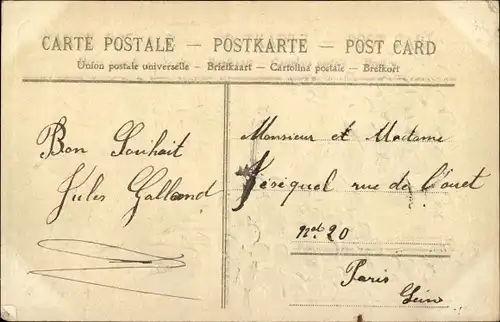 CARTE POSTALE — POSTKARTE — POST CARD
Union postale universelle — Briefkaart — Cartolina postale — Brefkort
Bon Souhait
Jules Galland
Monsieur et Madame
rue de l'ouet
No 20
Paris
Seine